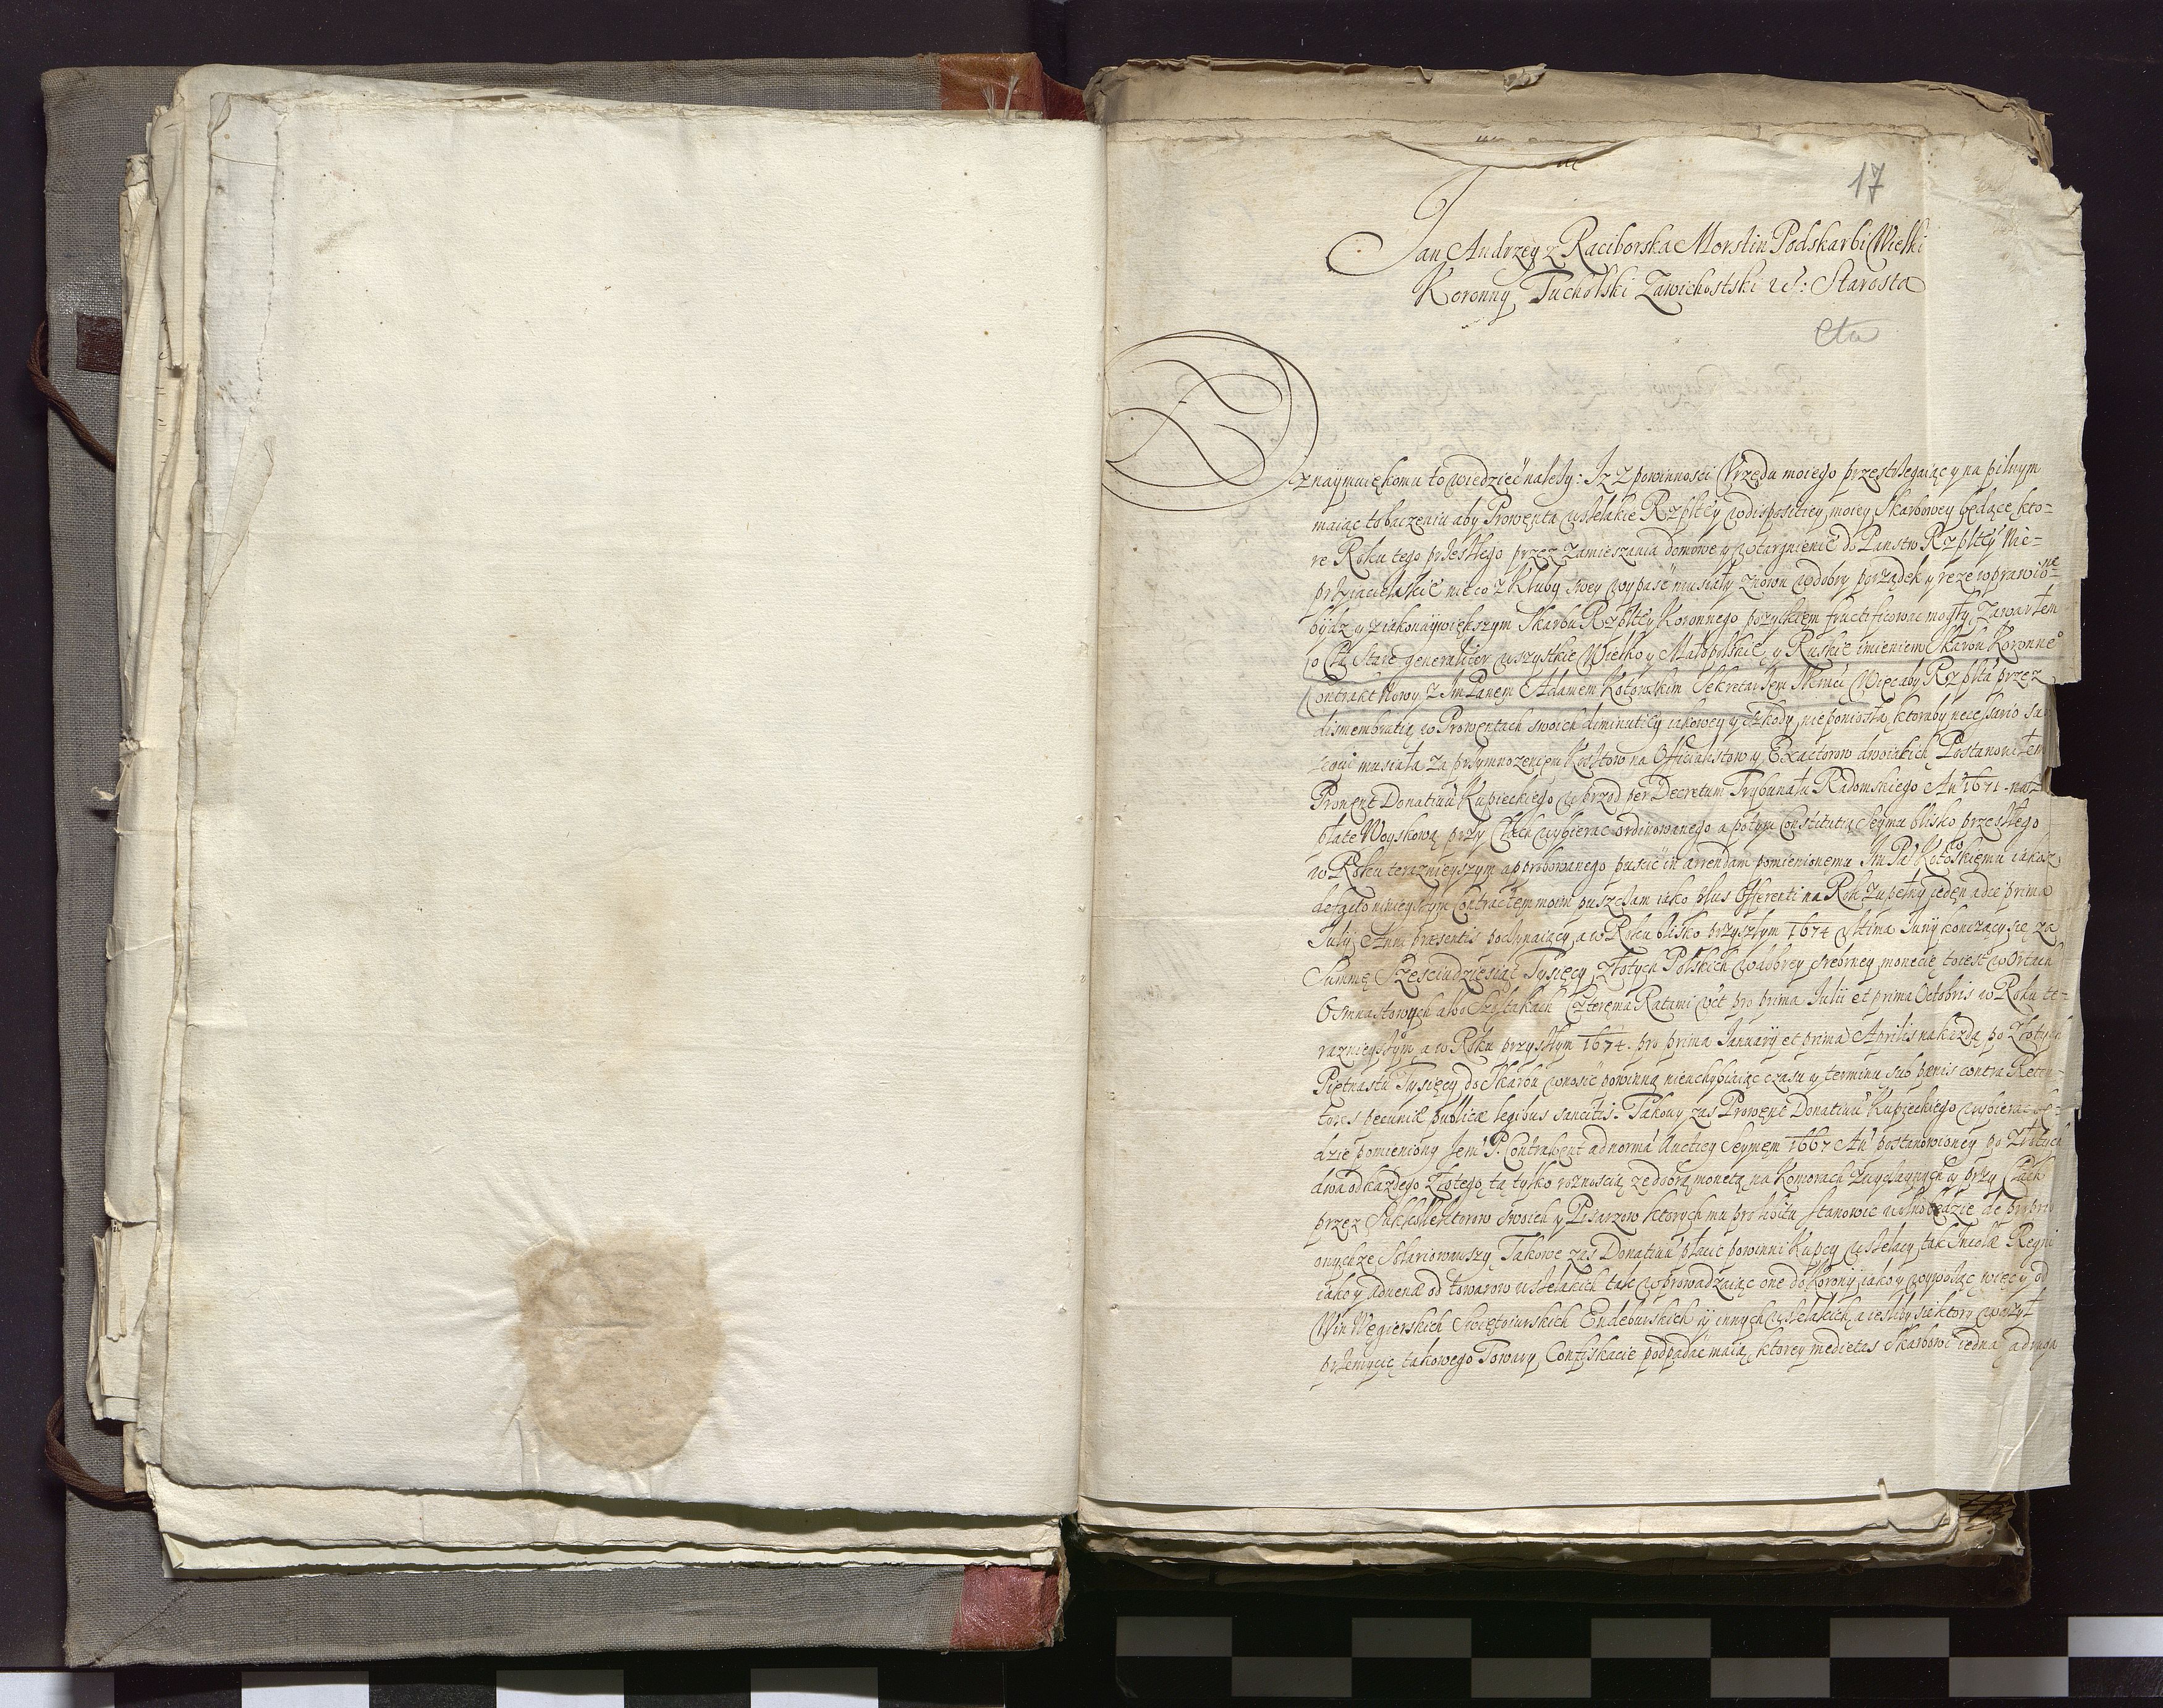 17
Jan Andrzey z Raciborska Morstin Podskarbi Wielki
Koronny Tucholski Zawichostski &c: Starosta
Cła
Oznaymuię komu to wiedzieć należy: Iz z powinnosci Vrzędu moiego przestrzegaiąc y na pilnym
maiąc to baczeniu aby Prowenta wszelakie Rzpltey w dispositiey moiey Skarbowey będące, kto-
re Roku tego przeszłego przez zamieszania domowe y wtargnienie do Panstw Rzpltey Nie-
przyiacielskie nieco z kluby swey wypaść musiały, znowu w dobry porządek y reze wprawione
bydz y z iako naywiększym Skarbu Rzpltey Koronnego pozytkiem fructificować mogły, Zawarłem
o Cła Stare generaliter wszystkie Wielko y Małopolskie, y Ruskie imieniem Skarbu Koronne°
Contrakt Nowy z Jm Panem Adamem Kotowskim Sekretarzem JKMci Więc aby Rzplta przez
dismembratią w Prowentach swoich diminutiey iakowey y szkody nie poniosła, ktoraby necessario su
musiała za przymnozeniem Kosztow na Officialistow y Exactorow dwoiakich Postanowiłem
Prowent Donatiuu Kupieckiego wprzod per Decretum Trybunału Radomskiego An° 1671 na za-
płatę Woyskową przy Cłach wybierac ordinowanego a potym Constitutią Seymu blisko przeszłego
w Roku teraznieyszym approbowanego puścić in arrendam pomienionemu Jm Pa° Kotowskiemu iakoz
de facto ninieyszym Contractem moim puszczam iako plus Offerenti na Rok zupełny ieden a die prima
Julij Anni præsentis poczynaiący, a w Roku blisko przyszłym 1674 ultima Junij konczący się za
Summę Szescdziesiąt Tysięcy Złotych Polskich w dobrey srebrney monecie to iest w Ortach
Osmnastowych albo Szostakach Czterema Ratami vt pro prima Julii et prima Octobris w Roku te-
raznieyszym a w Roku przyszłym 1674. pro prima Januarij et prima Aprilis na kazdą po Złotych
Piętnastu Tysięcy do Skarbu wnosić powinną nieuchybiaiąc czasu y terminu sub pænis contra Reten-
tores pecuniæ publicæ legibus sancitis. Takowy zas Prowent Donatiuu Kupieckiego wybierac bę-
dzie pomieniony Jem° P. Contrahent ad normā Auctiey Seymem 1667 An° postanowioney po Złotych
dwa od kazdego Złotego, tą tylko roznoscią, ze dobrą monetą na Komorach zwyczaynych y przy Cłach
przez Subkollektorow swoich y Pisarzow ktorych mu pro libitu stanowić wolno będzie de proprio
onychze Solariowawszy. Takowe zas Donatiuū płacić powinni Kupcy wszelacy tak Incolæ Regni
iako y aduenæ od towarow wszelakich tak wprowadzaiąc one do Korony iako y wywoząc więc y od
Win Węgierskich Swiętoiurskich Endeburskich y innych wszelakich, a iesliby się ktory wazył
przemycić takowego Towary, Confiskacie podpadać maią, ktorey medietas Skarbowi iedna, a druga